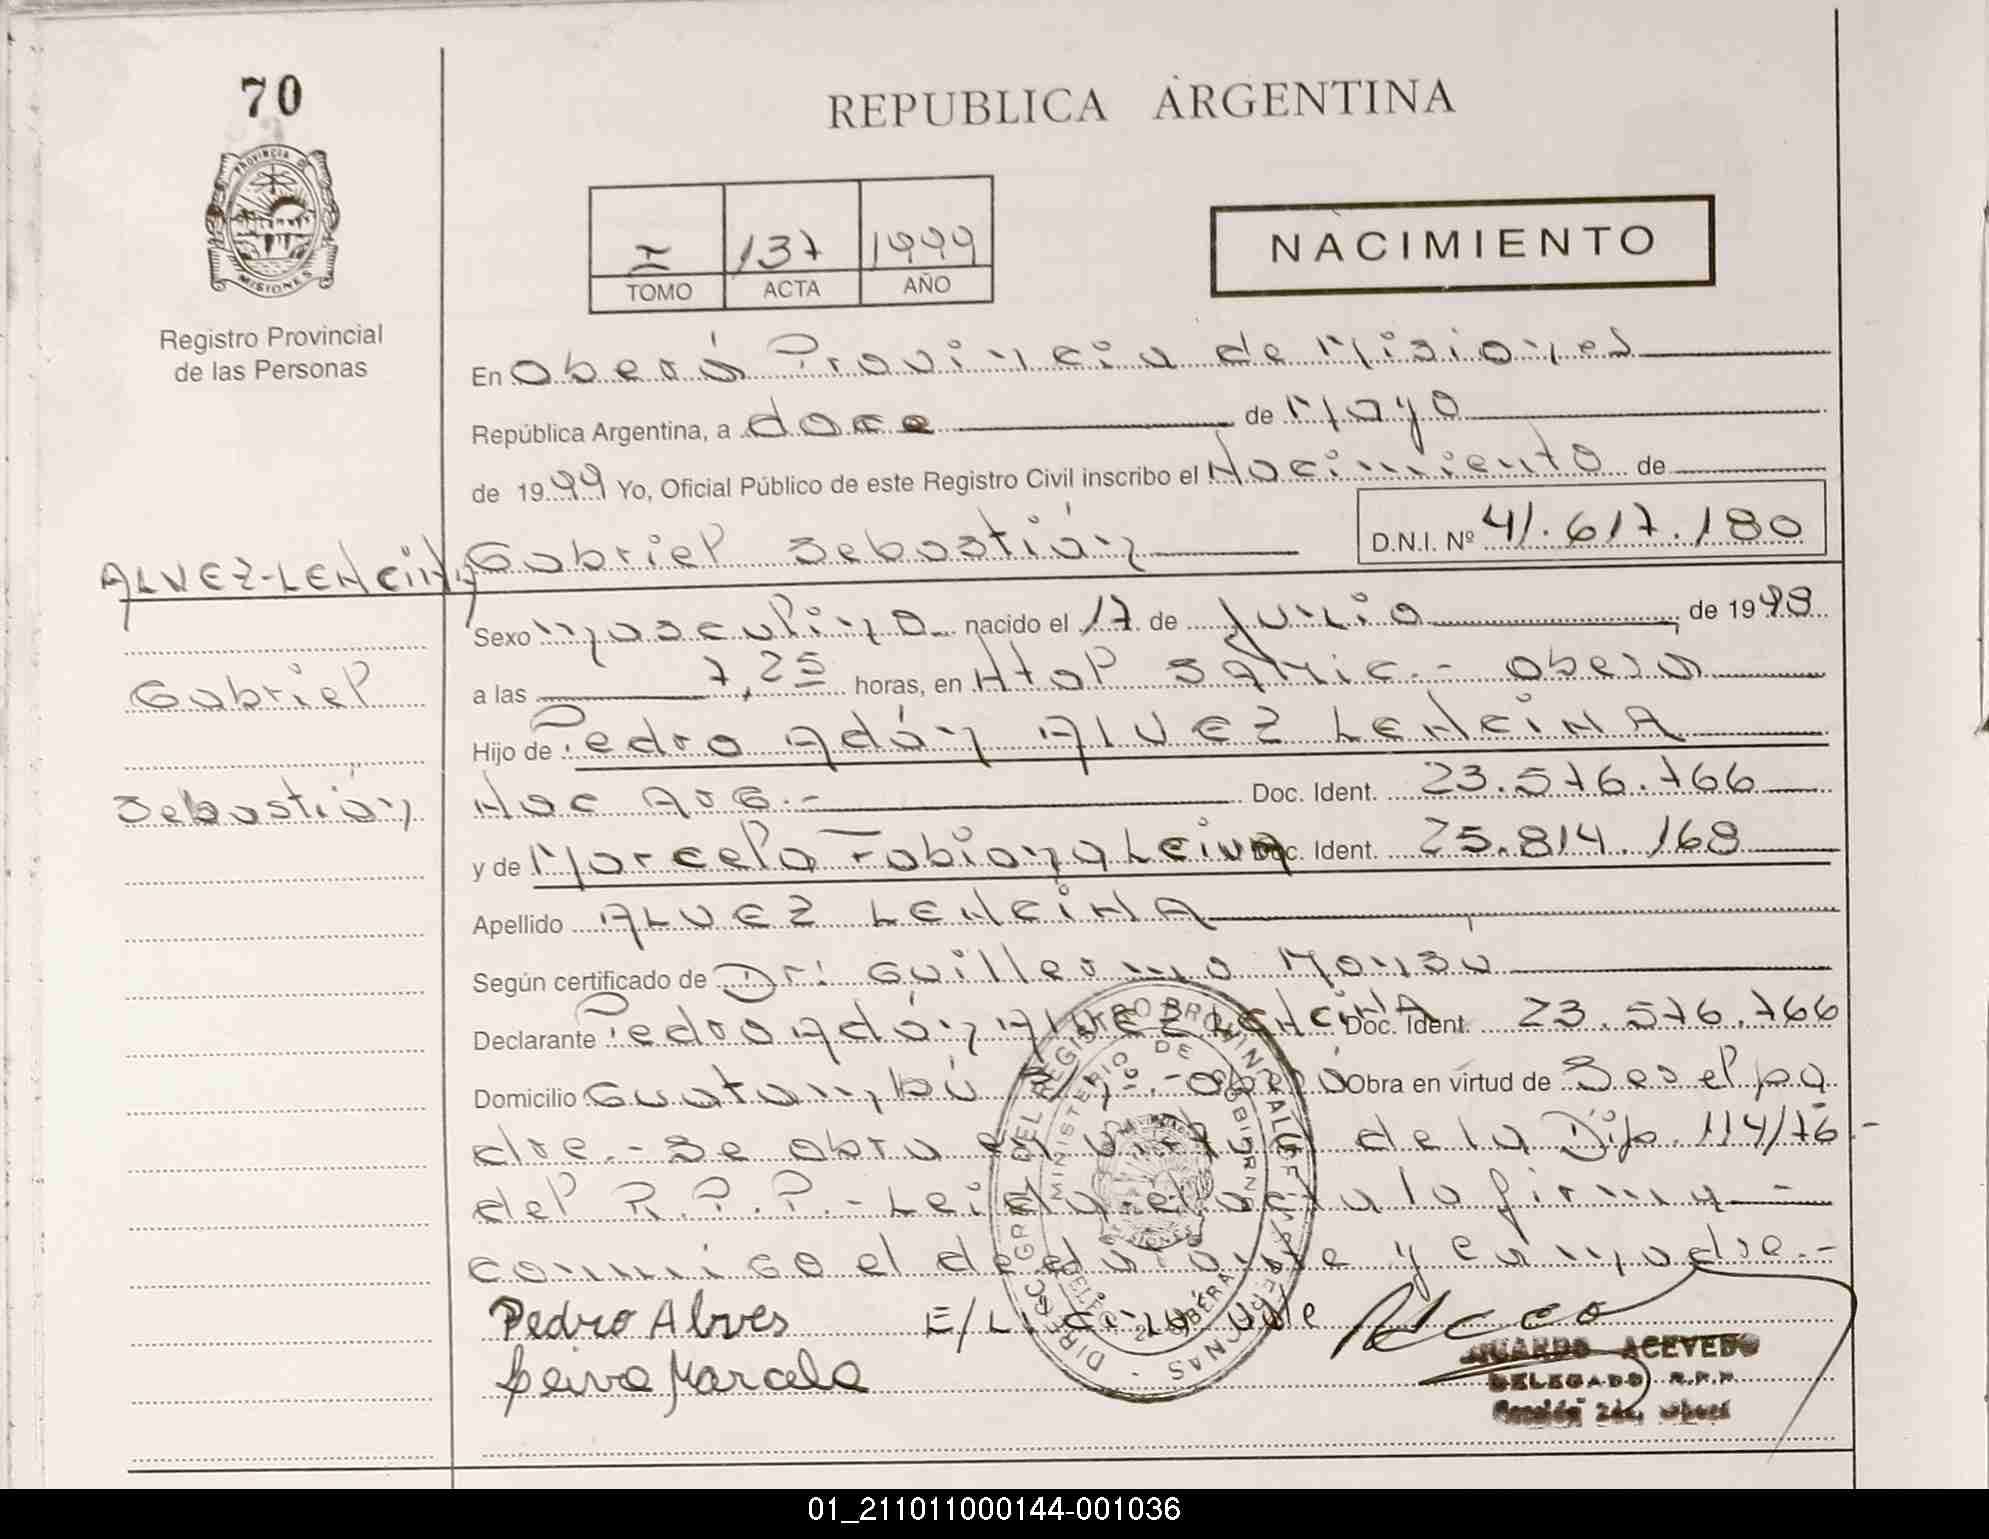 70
REPUBLICA ARGENTINA
PROVINCIA DE
MISIONES
Registro Provincial
de las Personas
I 137 1999
TOMO ACTA AÑO
NACIMIENTO
En Oberá Provincia de Misiones
República Argentina, a doce de Mayo
de 1999 Yo, Oficial Público de este Registro Civil inscribo el Nacimiento de
ALVEZ-LENCINA Gabriel Sebastián D.N.I. Nº 41.617.180
Sexo masculino nacido el 17 de Junio de 1998
Gabriel
a las 7,25 horas, en Htal SAMIC.- Oberá
Hijo de Pedro Adán ALVEZ LENCINA
Sebastián
Nac ARG.- Doc. Ident. 23.576.766
y de Marcela Fabiana Leiva Doc. Ident. 25.814.168
Apellido ALVEZ LENCINA
Según certificado de Dr: Guillermo
Declarante Pedro Adán ALVEZ LENCINA Doc. Ident. 23.576.766
Domicilio Guatambú Oberá Obra en virtud de Ser el pa
dre.- Se obra en virtud de la Disp. 114/76.-
del R.P.P.- Leida el acta la firma
conmigo el declarante y la madre.-
Pedro Alves E/L: vale
Leiva Marcela
EDUARDO ACEVEDO
DELEGADO R.P.P.
Sección 2da. Oberá
DIRECC. GRAL. DEL REGISTRO PROVINCIAL DE LAS PERSONAS
MINISTERIO DE GOBIERNO
01_211011000144-001036